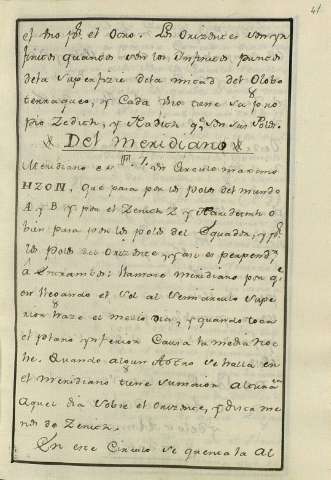 41
el uno pᵃ el otro. Los Orizontes son yn
finitos quantos son los Infinitos puntos
dela superfizie dela mitad del Globo
terraqueo, y Cada Uno tiene su pro
pio Zenich, y Nadich qᵉ son sus Polos.
Del Meridiano
Meridiano es F. 7. un Circulo maximo
HZON, que pasa por los Polos del mundo
A y B y por el Zenich Z y Nadir
bien pasa por los polos del Equador, y pʳ
los polos del Orizonte, y asi es perpend.ʳ
à Entrambos: llamase meridiano por qᵉ
en llegando el Sol al Semicirculo supe
rior haze el medio dia, y quando toca
el plano ynferior Causa la media no
che. Quando algun Astro se halla en
el meridiano tiene su maior altura en
aquel dia sobre el Orizonte, y dista me
nos do Zenich.
En este Circulo se quenta la Al